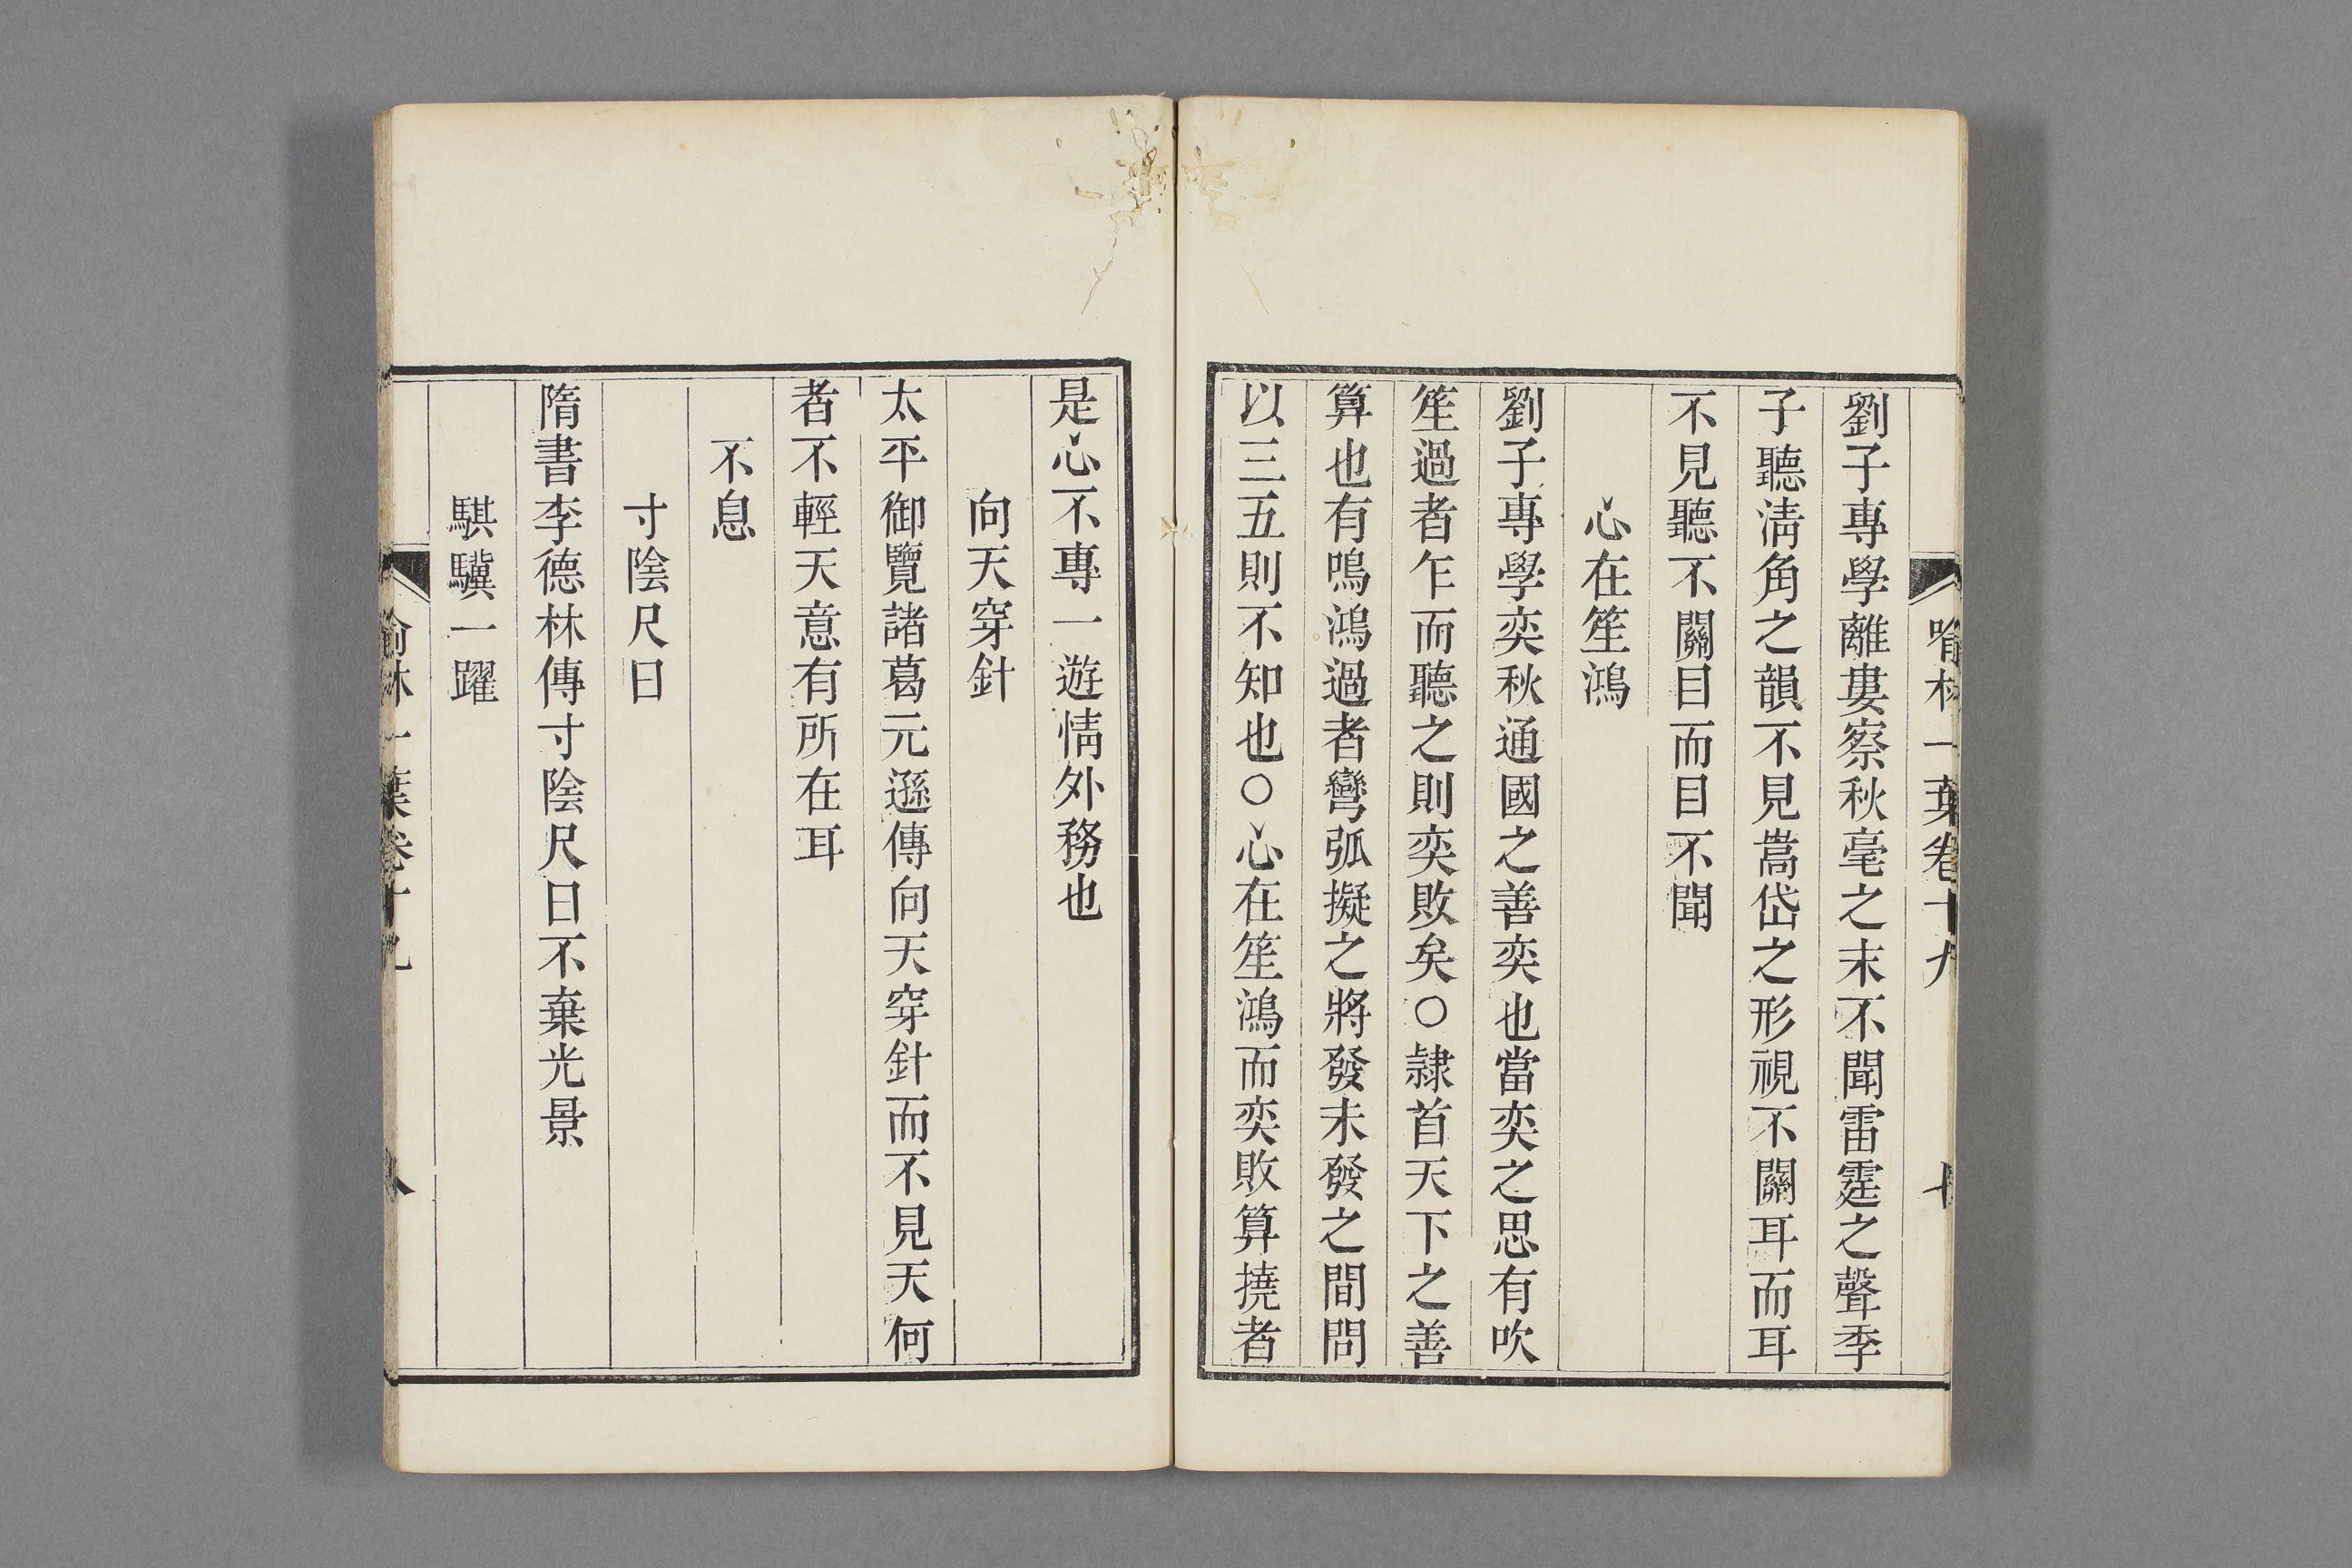 喻林一葉卷十九
七
劉子專學離婁察秋毫之末不聞雷霆之聲季
子聽淸角之韻不見嵩岱之形視不關耳而耳
不見聽不關目而目不聞
心在笙鴻
劉子專學奕秋通國之善奕也當奕之思有吹
笙過者乍而聽之則奕敗矣○隷首天下之善
算也有鳴鴻過者彎弧擬之將發未發之間問
以三五則不知也○心在笙鴻而奕敗算撓者
是心不專一遊情外務也
向天穿針
太平御覽諸葛元遜傳向天穿針而不見天何
者不輕天意有所在耳
不息
寸陰尺日
隋書李德林傳寸陰尺日不棄光景
騏驥一躍
喻林一葉卷十九
八